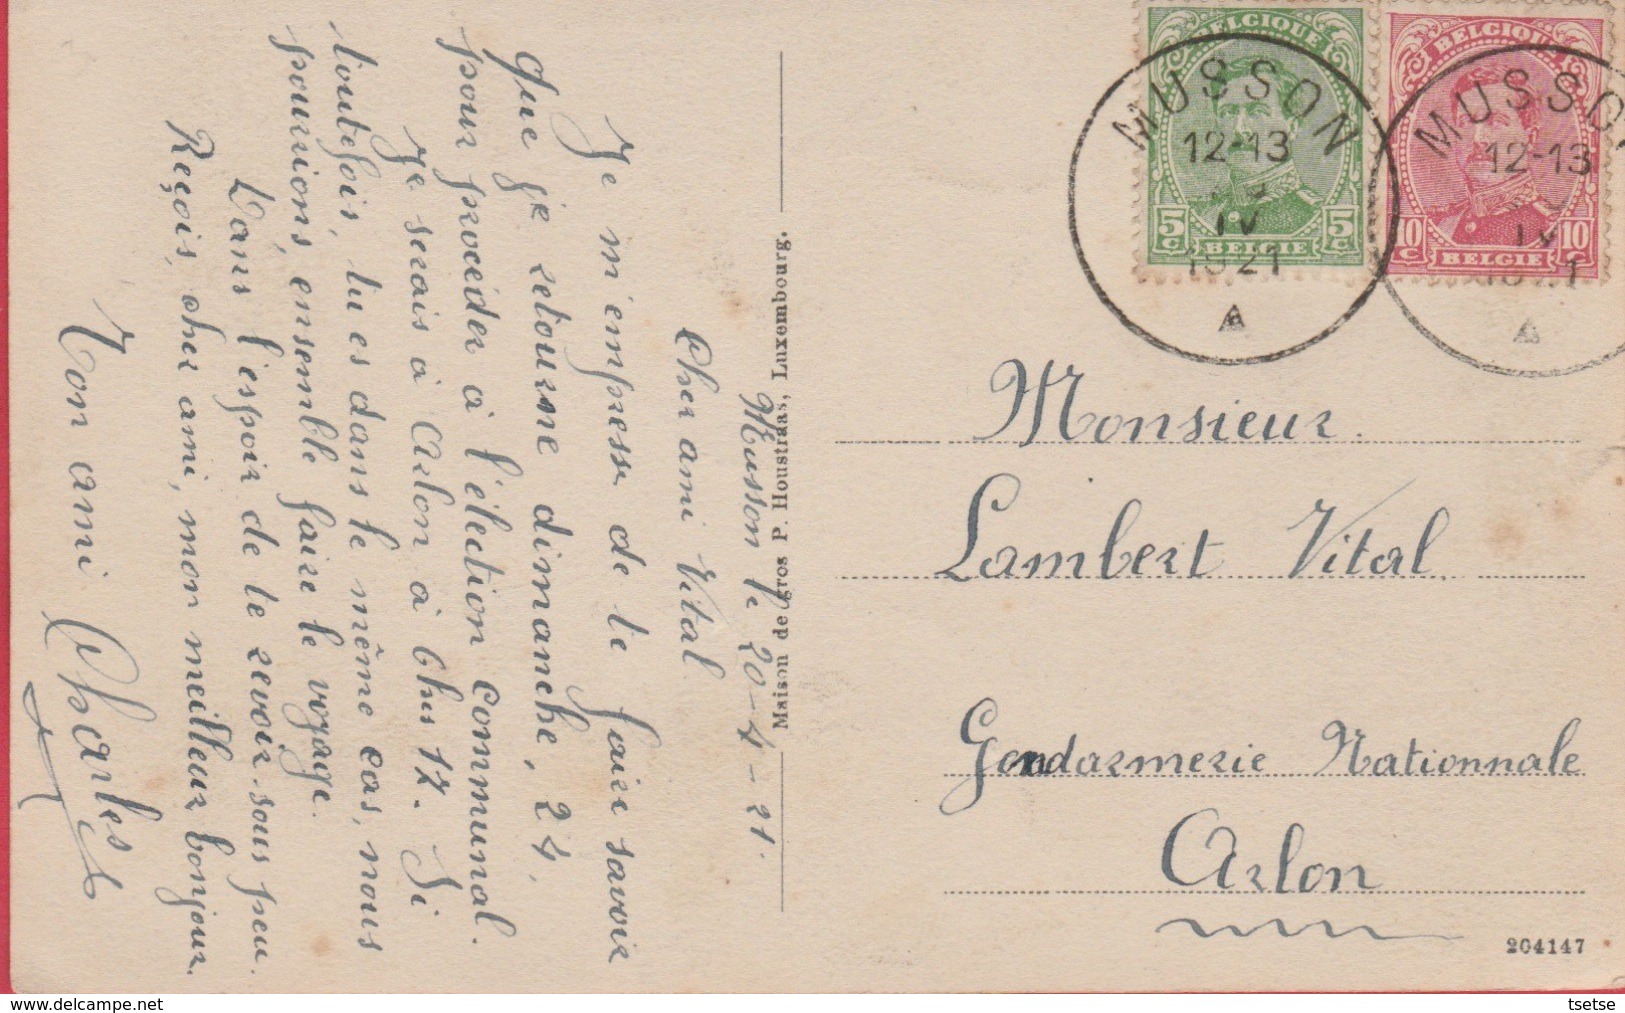 Musson le 20-4-21.
Cher ami Vital
Je m'empresse de te faire savoir
que je retourne dimanche, 24,
pour procéder à l'élection communal.
Je serais à Arlon à 6hrs 17. Si
toutefois, tu es dans le même cas, nous
pourrions, ensemble faire le voyage.
Dans l'espoir de te revoir sous peu.
Reçois, cher ami, mon meilleur bonjour.
Ton ami Charles
Maison de gros P. Houstraas, Luxembourg.
BELGIQUE
5c 5c
BELGIE
BELGIQUE
10c 10c
BELGIE
MUSSON
12-13
IV
1921
A
MUSSO
12-13
IV
A
Monsieur
Lambert Vital
Gendarmerie Nationnale
Arlon
204147
www.delcampe.net
tsetse